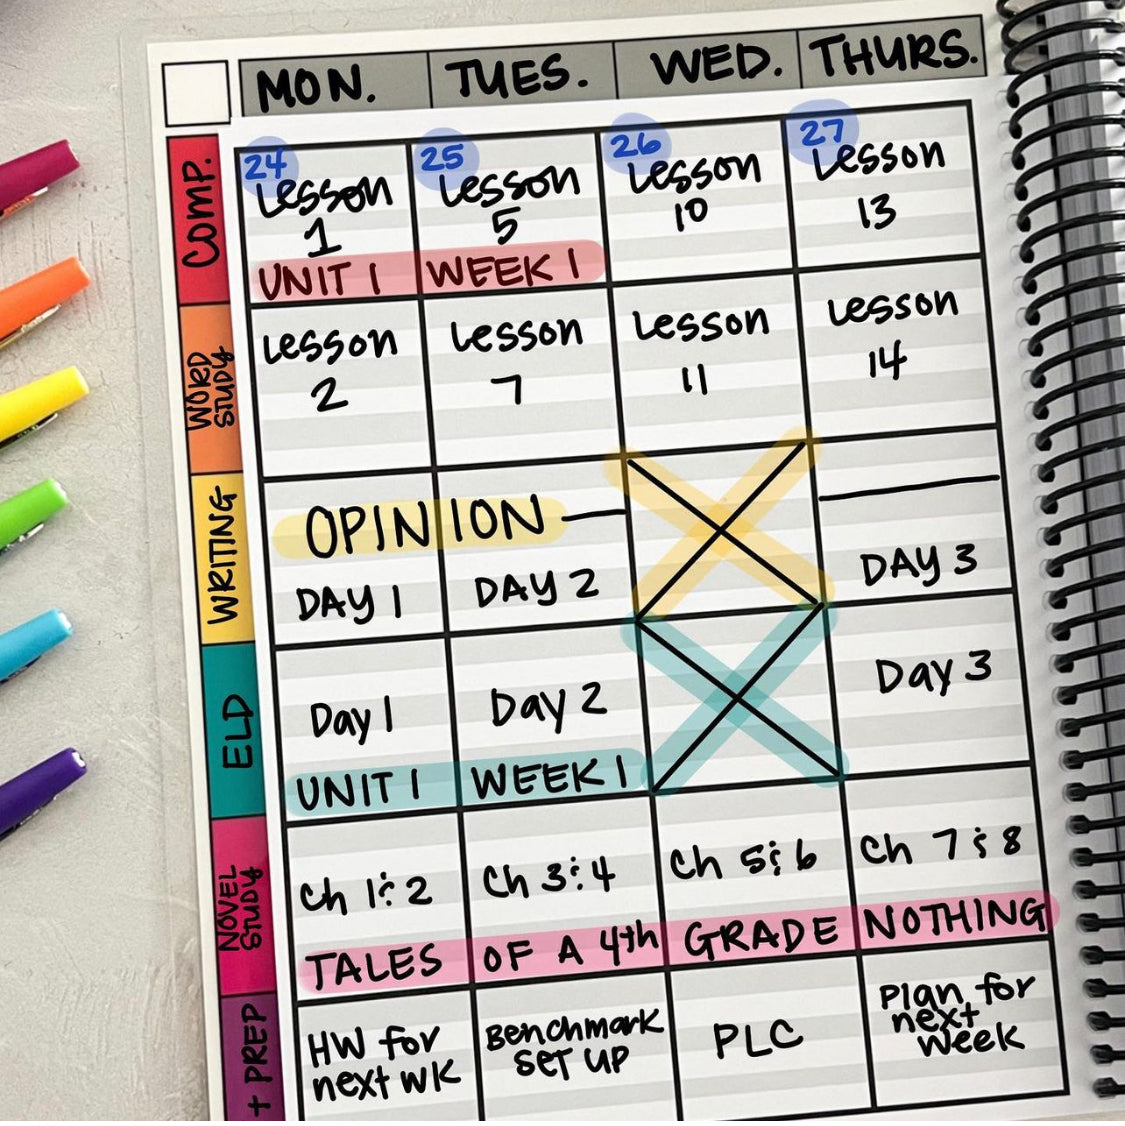 MON. TUES. WED. THURS.
COMP.
24 25 26 27
Lesson Lesson Lesson Lesson
1 5 10 13
UNIT 1 WEEK 1
WORD
STUDY
Lesson Lesson Lesson Lesson
2 7 11 14
WRITING
OPINION
DAY 1 DAY 2 DAY 3
ELD
Day 1 Day 2 Day 3
UNIT 1 WEEK 1
NOVEL
STUDY
Ch 1 & 2 Ch 3 & 4 Ch 5 & 6 Ch 7 & 8
TALES OF A 4th GRADE NOTHING
+ PREP
HW for
next wk
Benchmark
SET UP
PLC
Plan for
next
week